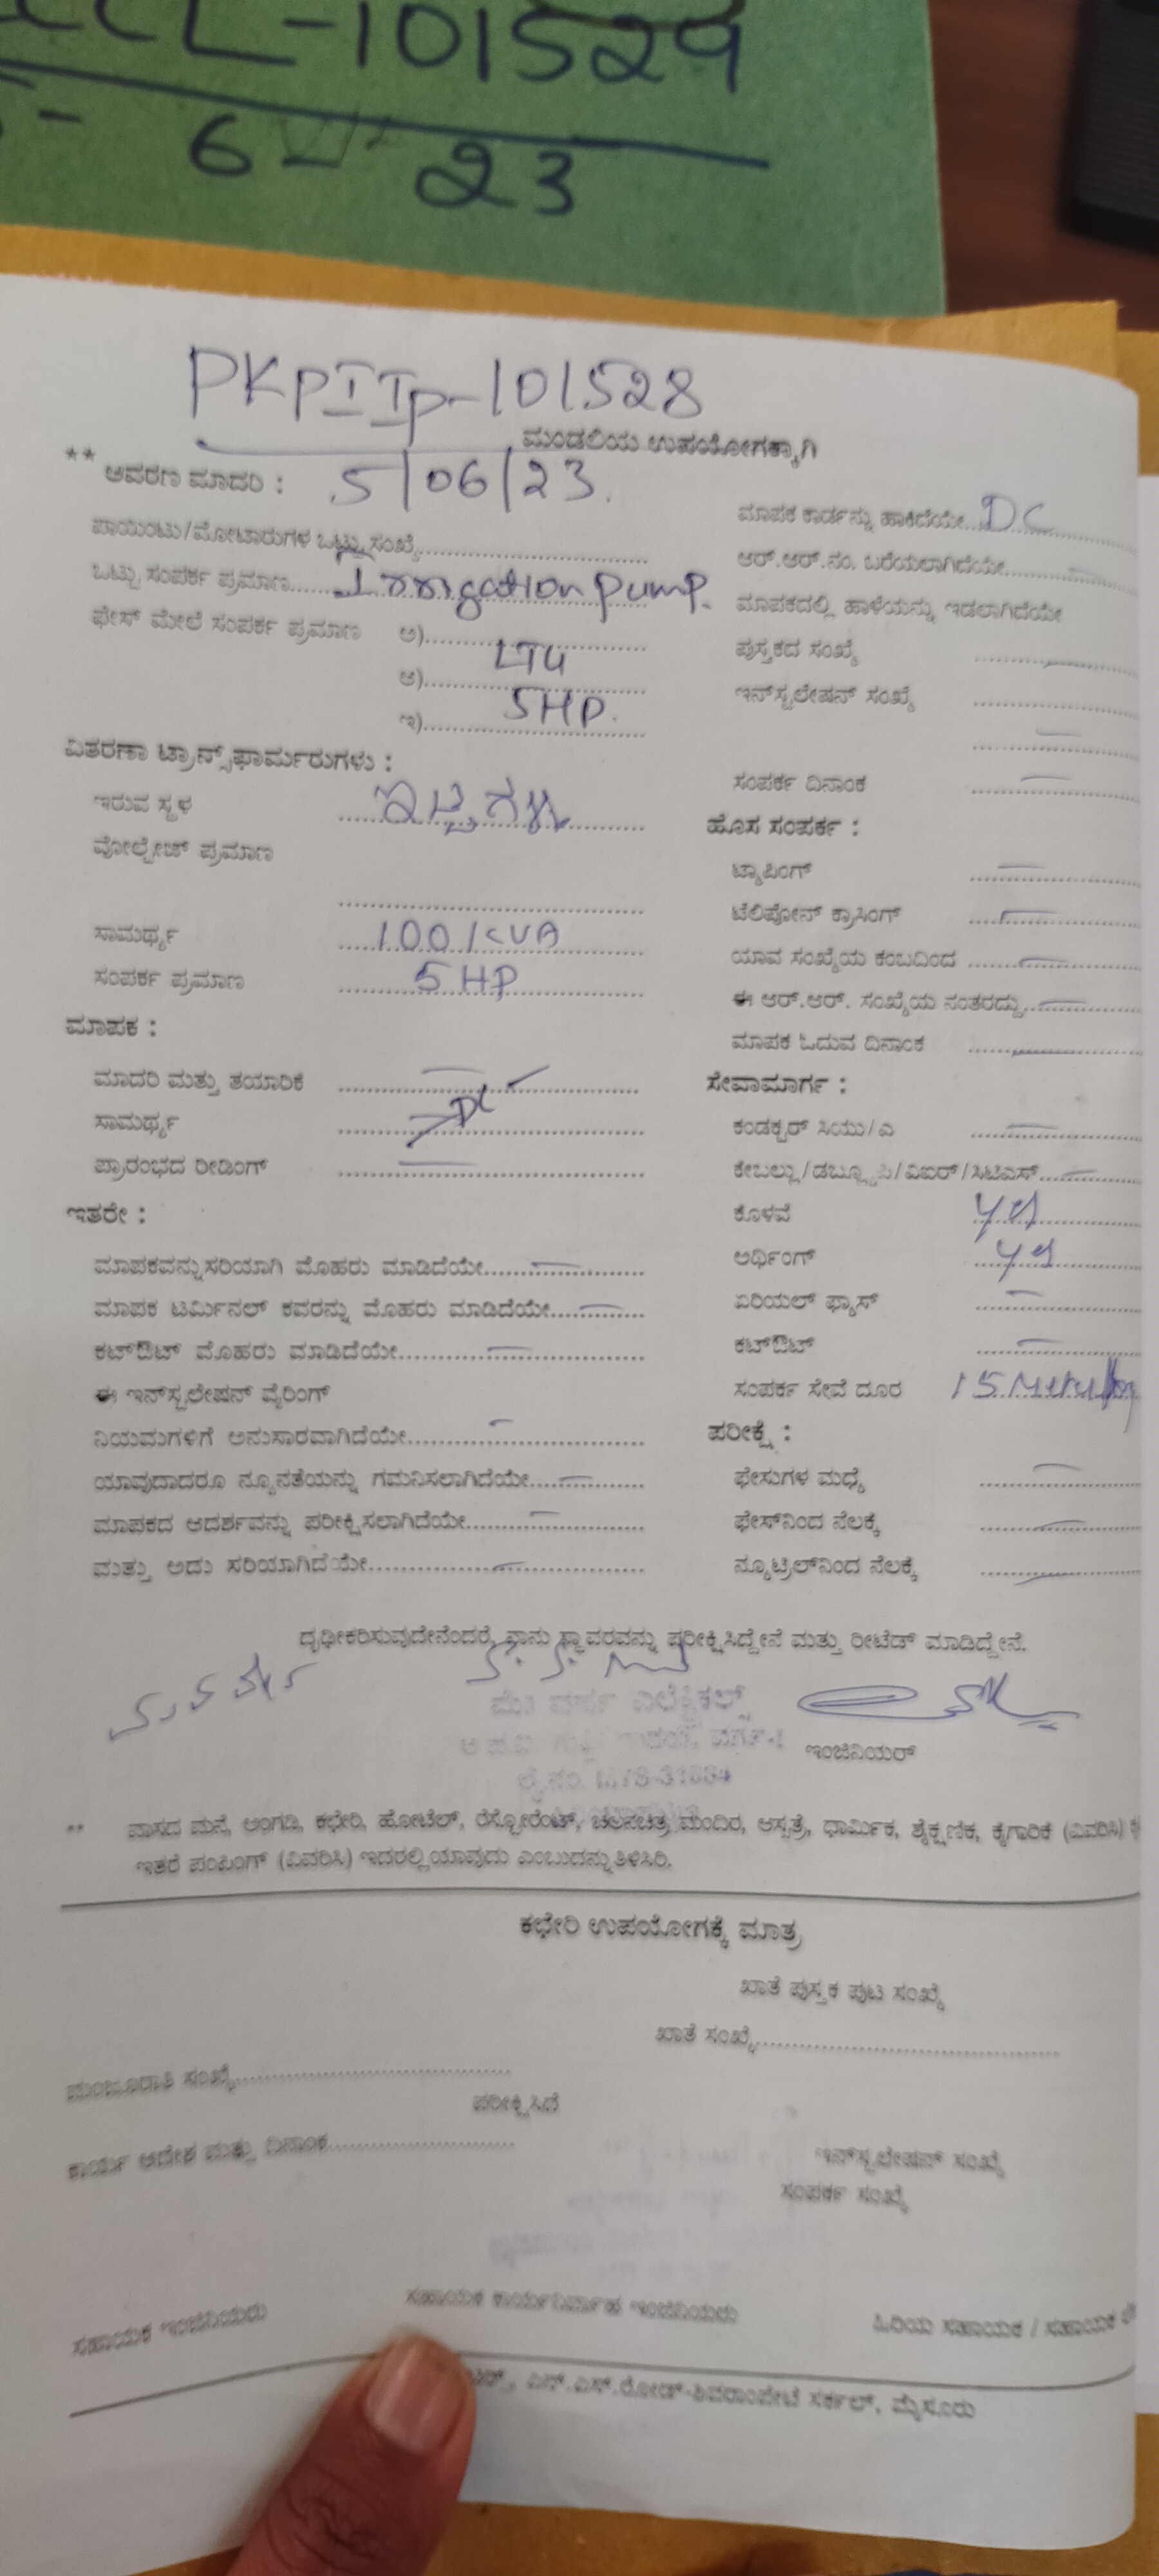 CCL-101529
5-6-23
PKPIIp-101528
ಮಂಡಲಿಯ ಉಪಯೋಗಕ್ಕಾಗಿ
** ಆವರಣ ಮಾದರಿ : 5/06/23.
ಪಾಯಿಂಟು/ಮೋಟಾರುಗಳ ಒಟ್ಟು ಸಂಖ್ಯೆ
ಒಟ್ಟು ಸಂಪರ್ಕ ಪ್ರಮಾಣ Irrigation pump.
ಫೇಸ್ ಮೇಲೆ ಸಂಪರ್ಕ ಪ್ರಮಾಣ ಅ)
ಆ) LT4
ಇ) 5HP.
ವಿತರಣಾ ಟ್ರಾನ್ಸ್‌ಫಾರ್ಮರುಗಳು :
ಇರುವ ಸ್ಥಳ
ವೋಲ್ಟೇಜ್ ಪ್ರಮಾಣ
ಸಾಮರ್ಥ್ಯ 100 KVA
ಸಂಪರ್ಕ ಪ್ರಮಾಣ 5 HP
ಮಾಪಕ :
ಮಾದರಿ ಮತ್ತು ತಯಾರಿಕೆ
ಸಾಮರ್ಥ್ಯ DC
ಪ್ರಾರಂಭದ ರೀಡಿಂಗ್
ಇತರೇ :
ಮಾಪಕವನ್ನು ಸರಿಯಾಗಿ ಮೊಹರು ಮಾಡಿದೆಯೇ
ಮಾಪಕ ಟರ್ಮಿನಲ್ ಕವರನ್ನು ಮೊಹರು ಮಾಡಿದೆಯೇ
ಕಟ್‌ಔಟ್ ಮೊಹರು ಮಾಡಿದೆಯೇ
ಈ ಇನ್‌ಸ್ಟಲೇಷನ್ ವೈರಿಂಗ್
ನಿಯಮಗಳಿಗೆ ಅನುಸಾರವಾಗಿದೆಯೇ
ಯಾವುದಾದರೂ ನ್ಯೂನತೆಯನ್ನು ಗಮನಿಸಲಾಗಿದೆಯೇ
ಮಾಪಕದ ಆದರ್ಶವನ್ನು ಪರೀಕ್ಷಿಸಲಾಗಿದೆಯೇ
ಮತ್ತು ಅದು ಸರಿಯಾಗಿದೆಯೇ
ಮಾಪಕ ಕಾರ್ಡನ್ನು ಹಾಕಿದೆಯೇ DC
ಆರ್.ಆರ್.ನಂ. ಬರೆಯಲಾಗಿದೆಯೇ
ಮಾಪಕದಲ್ಲಿ ಹಾಳೆಯನ್ನು ಇಡಲಾಗಿದೆಯೇ
ಪುಸ್ತಕದ ಸಂಖ್ಯೆ
ಇನ್‌ಸ್ಟಲೇಷನ್ ಸಂಖ್ಯೆ
ಸಂಪರ್ಕ ದಿನಾಂಕ
ಹೊಸ ಸಂಪರ್ಕ :
ಟ್ಯಾಪಿಂಗ್
ಟೆಲಿಪೋನ್ ಕ್ರಾಸಿಂಗ್
ಯಾವ ಸಂಖ್ಯೆಯ ಕಂಬದಿಂದ
ಈ ಆರ್.ಆರ್. ಸಂಖ್ಯೆಯ ನಂತರದ್ದು
ಮಾಪಕ ಓದುವ ದಿನಾಂಕ
ಸೇವಾಮಾರ್ಗ :
ಕಂಡಕ್ಟರ್ ಸಿಯು/ಎ
ಕೇಬಲ್ಲು/ಡಬ್ಲ್ಯೂಪಿ/ವಿಐರ್/ಸಿಟಿಎಸ್
ಕೊಳವೆ yes
ಅರ್ಥಿಂಗ್ yes
ಏರಿಯಲ್ ಫ್ಯಾಸ್
ಕಟ್‌ಔಟ್
ಸಂಪರ್ಕ ಸೇವೆ ದೂರ 15
ಪರೀಕ್ಷೆ :
ಫೇಸುಗಳ ಮಧ್ಯೆ
ಫೇಸ್‌ನಿಂದ ನೆಲಕ್ಕೆ
ನ್ಯೂಟ್ರಿಲ್‌ನಿಂದ ನೆಲಕ್ಕೆ
ದೃಢೀಕರಿಸುವುದೇನೆಂದರೆ, ನಾನು ಸ್ಥಾವರವನ್ನು ಪರೀಕ್ಷಿಸಿದ್ದೇನೆ ಮತ್ತು ರೀಟೆಡ್ ಮಾಡಿದ್ದೇನೆ.
ಇಂಜಿನಿಯರ್
** ವಾಸದ ಮನೆ, ಅಂಗಡಿ, ಕಛೇರಿ, ಹೋಟೆಲ್, ರೆಸ್ಟೋರೆಂಟ್, ಚಲನಚಿತ್ರ ಮಂದಿರ, ಆಸ್ಪತ್ರೆ, ಧಾರ್ಮಿಕ, ಶೈಕ್ಷಣಿಕ, ಕೈಗಾರಿಕೆ (ವಿವರಿಸಿ)
ಇತರೆ ಪಂಪಿಂಗ್ (ವಿವರಿಸಿ) ಇದರಲ್ಲಿ ಯಾವುದು ಎಂಬುದನ್ನು ತಿಳಿಸಿರಿ.
ಕಛೇರಿ ಉಪಯೋಗಕ್ಕೆ ಮಾತ್ರ
ಖಾತೆ ಪುಸ್ತಕ ಪುಟ ಸಂಖ್ಯೆ
ಖಾತೆ ಸಂಖ್ಯೆ
ಮಂಜೂರಾತಿ ಸಂಖ್ಯೆ
ಪರೀಕ್ಷಿಸಿದೆ
ಕಾರ್ಯ ಆದೇಶ ಮತ್ತು ದಿನಾಂಕ
ಇನ್‌ಸ್ಟಲೇಷನ್ ಸಂಖ್ಯೆ
ಸಂಪರ್ಕ ಸಂಖ್ಯೆ
ಸಹಾಯಕ ಇಂಜಿನಿಯರು ಸಹಾಯಕ ಕಾರ್ಯನಿರ್ವಾಹ ಇಂಜಿನಿಯರು ಹಿರಿಯ ಸಹಾಯಕ / ಸಹಾಯಕ
ಎನ್.ಎಸ್.ರೋಡ್-ಶಿವರಾಂಪೇಟೆ ಸರ್ಕಲ್, ಮೈಸೂರು